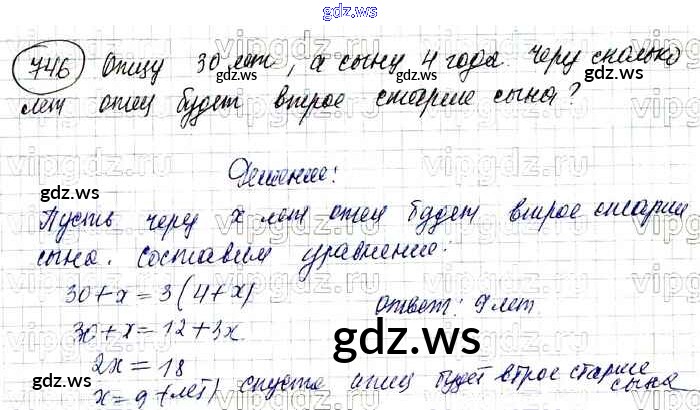 gdz.ws
746 Отцу 30 лет, а сыну 4 года. Через сколько
лет отец будет втрое старше сына?
gdz.ws
Решение:
Пусть через x лет отец будет втрое старше
сына. Составим уравнение:
30+x=3(4+x)
30+x=12+3x
2x=18
x=9 (лет) спустя отец будет втрое старше
сына
ответ: 9 лет.
gdz.ws
gdz.ws
gdz.ws
vipgdz.ru